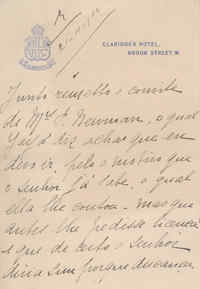 CLARIDGE'S HOTEL,
BROOK STREET. W.
Junto remetto o convite
de Mrs E. Newman, o qual
diz achar que eu
devo ir, pelo o motivo que
o Senhor já sabe, o qual
ella lhe contou - mas que
antes lhe pedisse licença
e que de certo o Senhor
diria sim porque